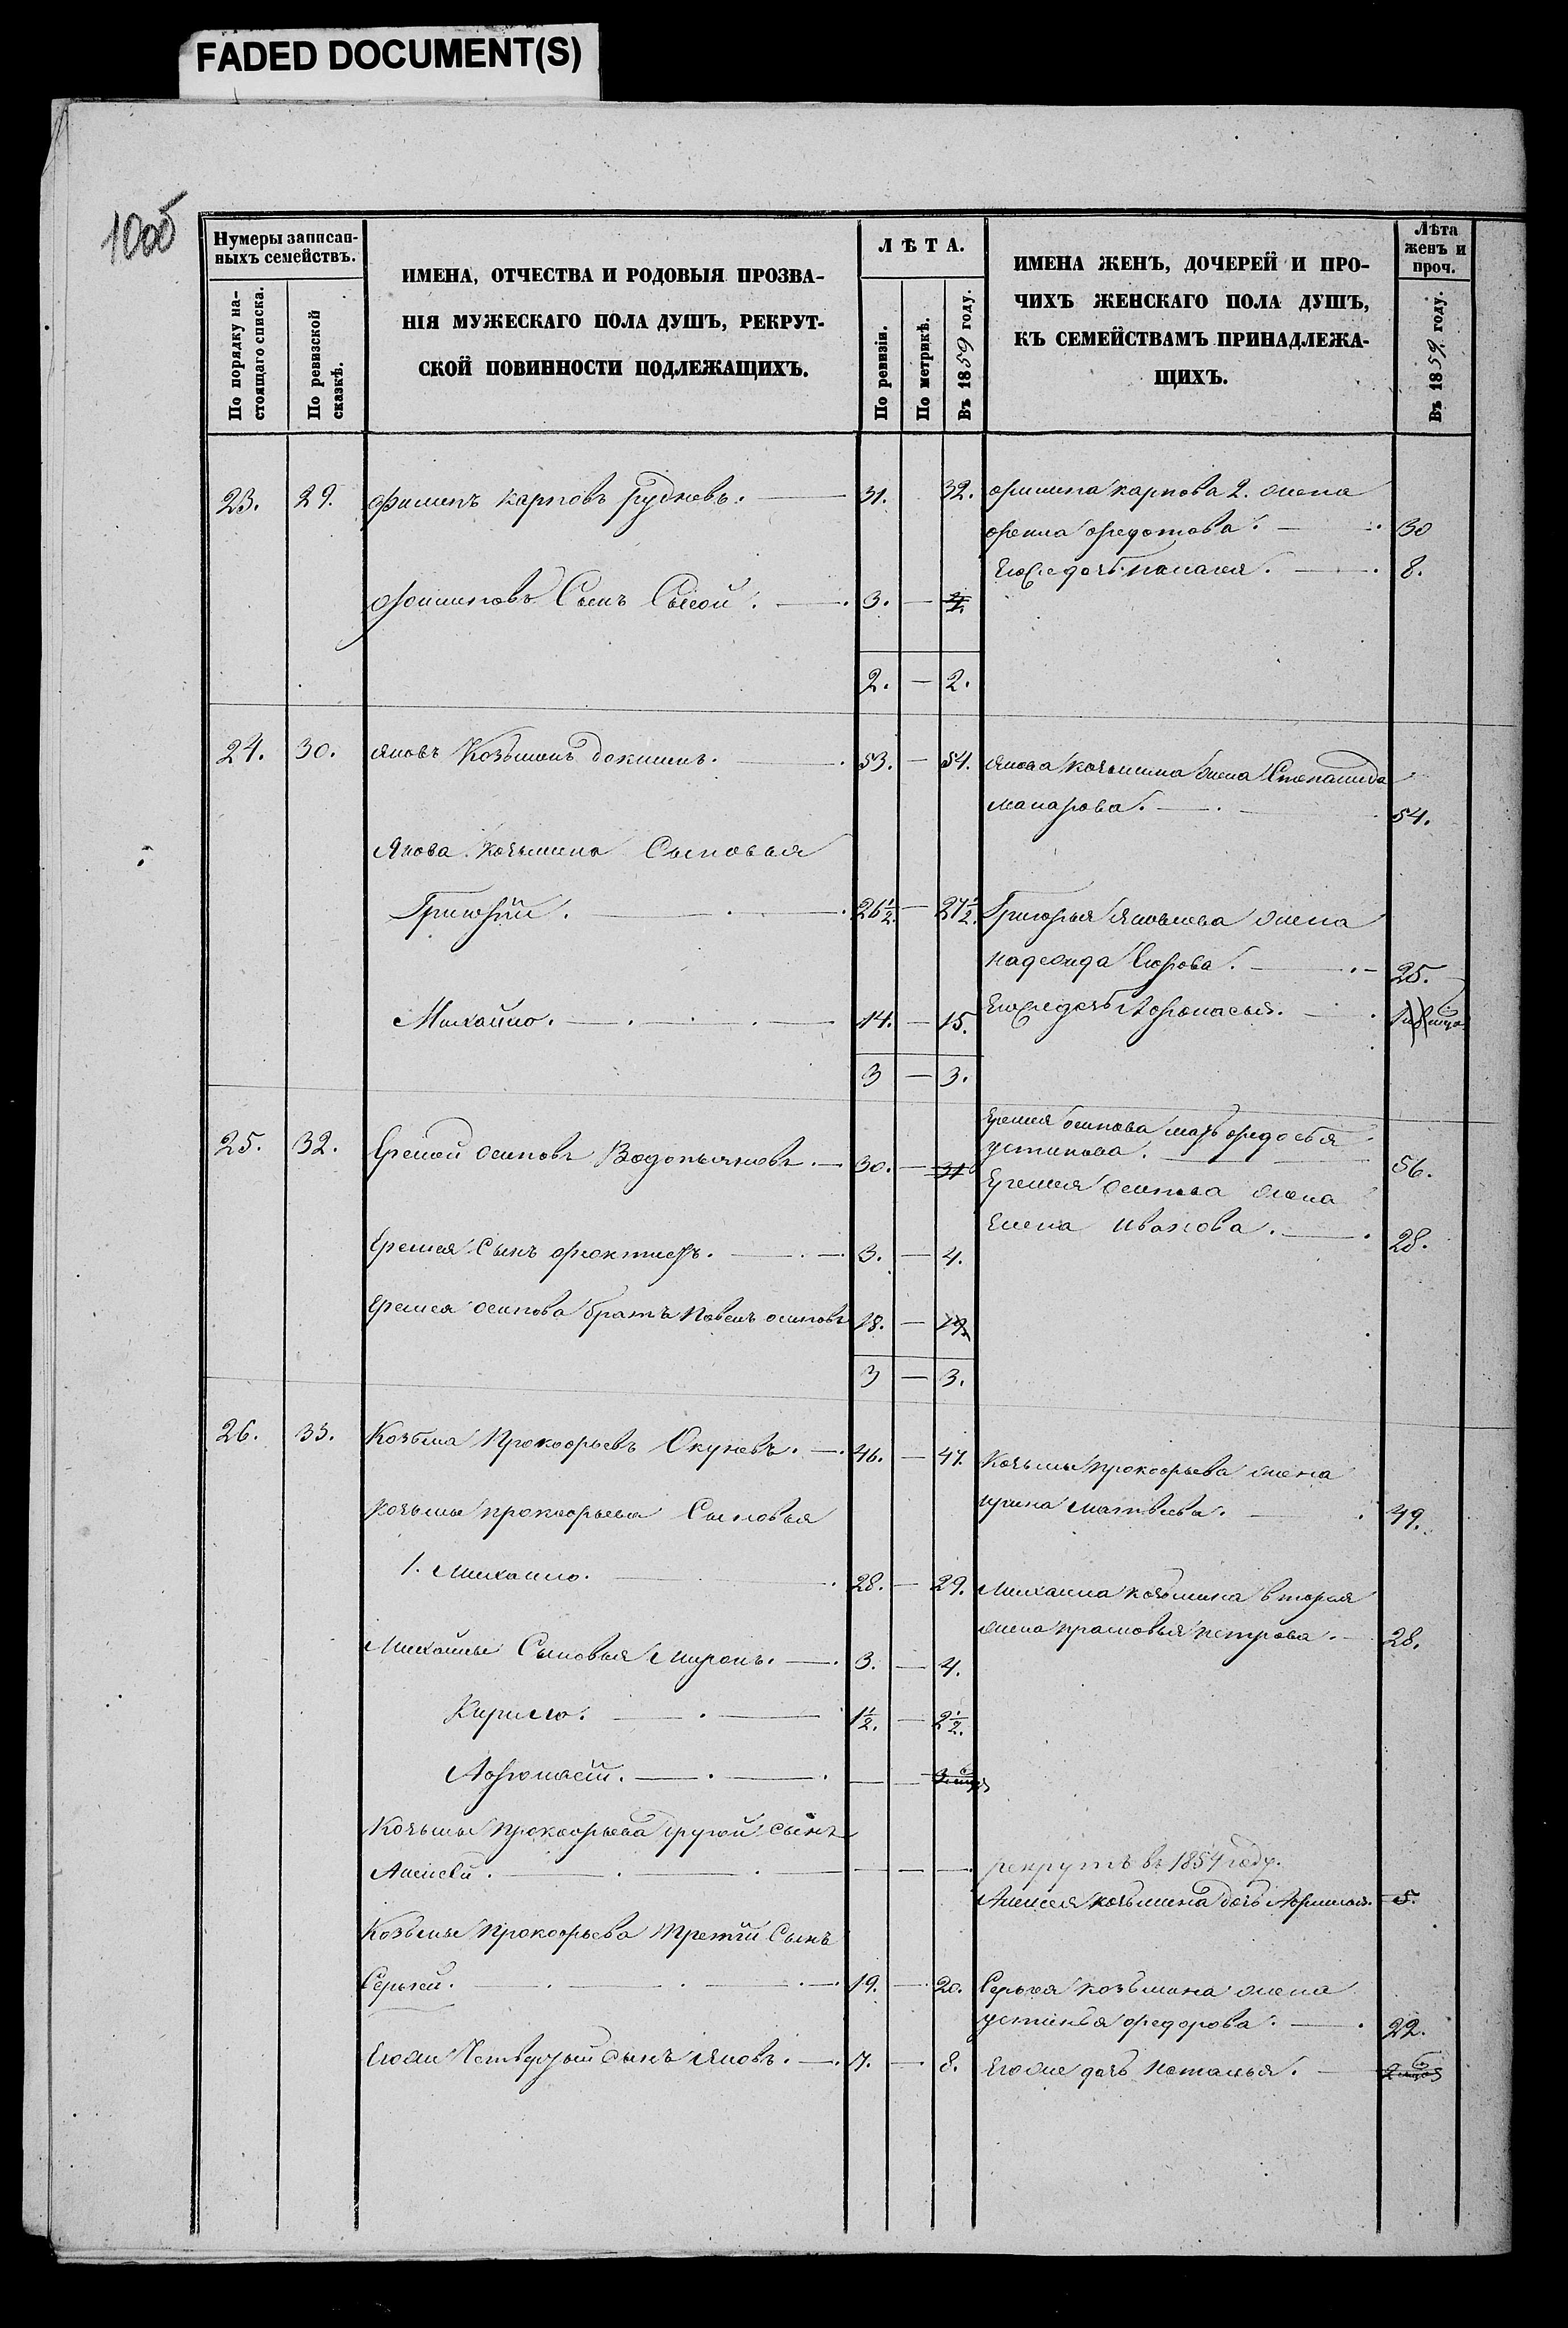 FADED DOCUMENT(S)
100б
Нумеры записан-
ныхъ семействъ.
По порядку на-
стоящаго списка.
По ревизской
сказкѣ.
ИМЕНА, ОТЧЕСТВА И РОДОВЫЯ ПРОЗВА-
НІЯ МУЖЕСКАГО ПОЛА ДУШЪ, РЕКРУТ-
СКОЙ ПОВИННОСТИ ПОДЛЕЖАЩИХЪ.
ЛѢТА.
По ревизіи.
По метрикѣ.
Въ 1859 году.
ИМЕНА ЖЕНЪ, ДОЧЕРЕЙ И ПРО-
ЧИХЪ ЖЕНСКАГО ПОЛА ДУШЪ,
КЪ СЕМЕЙСТВАМЪ ПРИНАДЛЕЖА-
ЩИХЪ.
Лѣта
женъ и
проч.
Въ 1859 году.
23. 29. Филипъ Карповъ Рудневъ. 31. 32.
Филипа Карпова 2. жена
Фекла Федотова. 30
Его же дочь Пелагея. 8.
Филиповъ Сынъ Сысой. 3. — 4.
2. — 2.
24. 30. Яковъ Козьминъ 53. — 54.
Якова Козьмина жена Степанида
Макарова. 54.
Якова Козьмина Сыновья
Григорій. 26½ — 27½.
Григорья Яковлева жена
Надежда Егорова. 25.
Михайло. 14. — 15.
Его же дочь Афонасья.
3 — 3.
25. 32. Еремей Осиповъ Водопьяновъ. 30. — 31
Еремея Осипова мать Федосья
Устинова. 56.
Еремея Осипова жена
Елена Иванова. 28.
Еремея Сынъ Феоктистъ. 3. — 4.
Еремея Осипова братъ Павелъ Осиповъ 18. — 19.
3 — 3.
26. 33. Козьма Прокофьевъ Окуневъ. 46. — 47.
Козьмы Прокофьева жена
Ирина Матвѣева. 49.
Козьмы Прокофьева Сыновья
1. Михайло. 28. — 29.
Михайла Козьмина вторая
жена Прасковья Петрова. 28.
Михайлы Сыновья Миронъ. 3. — 4.
Кирило. 1½. — 2½.
Афонасій. — —
Козьмы Прокофьева другой сынъ
Алексѣй. — — —
рекрутъ въ 1854 году.
Алексея Козьмина дочь 5.
Козьмы Прокофьева Третій Сынъ
Сергей. 19. — 20.
Сергея Козьмина жена
Устинья Федорова. 22.
Его же Четвертый сынъ Яковъ. 7. — 8.
Его же дочь Наталья.